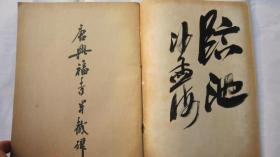 臨池
沙孟海
唐興福寺半截碑